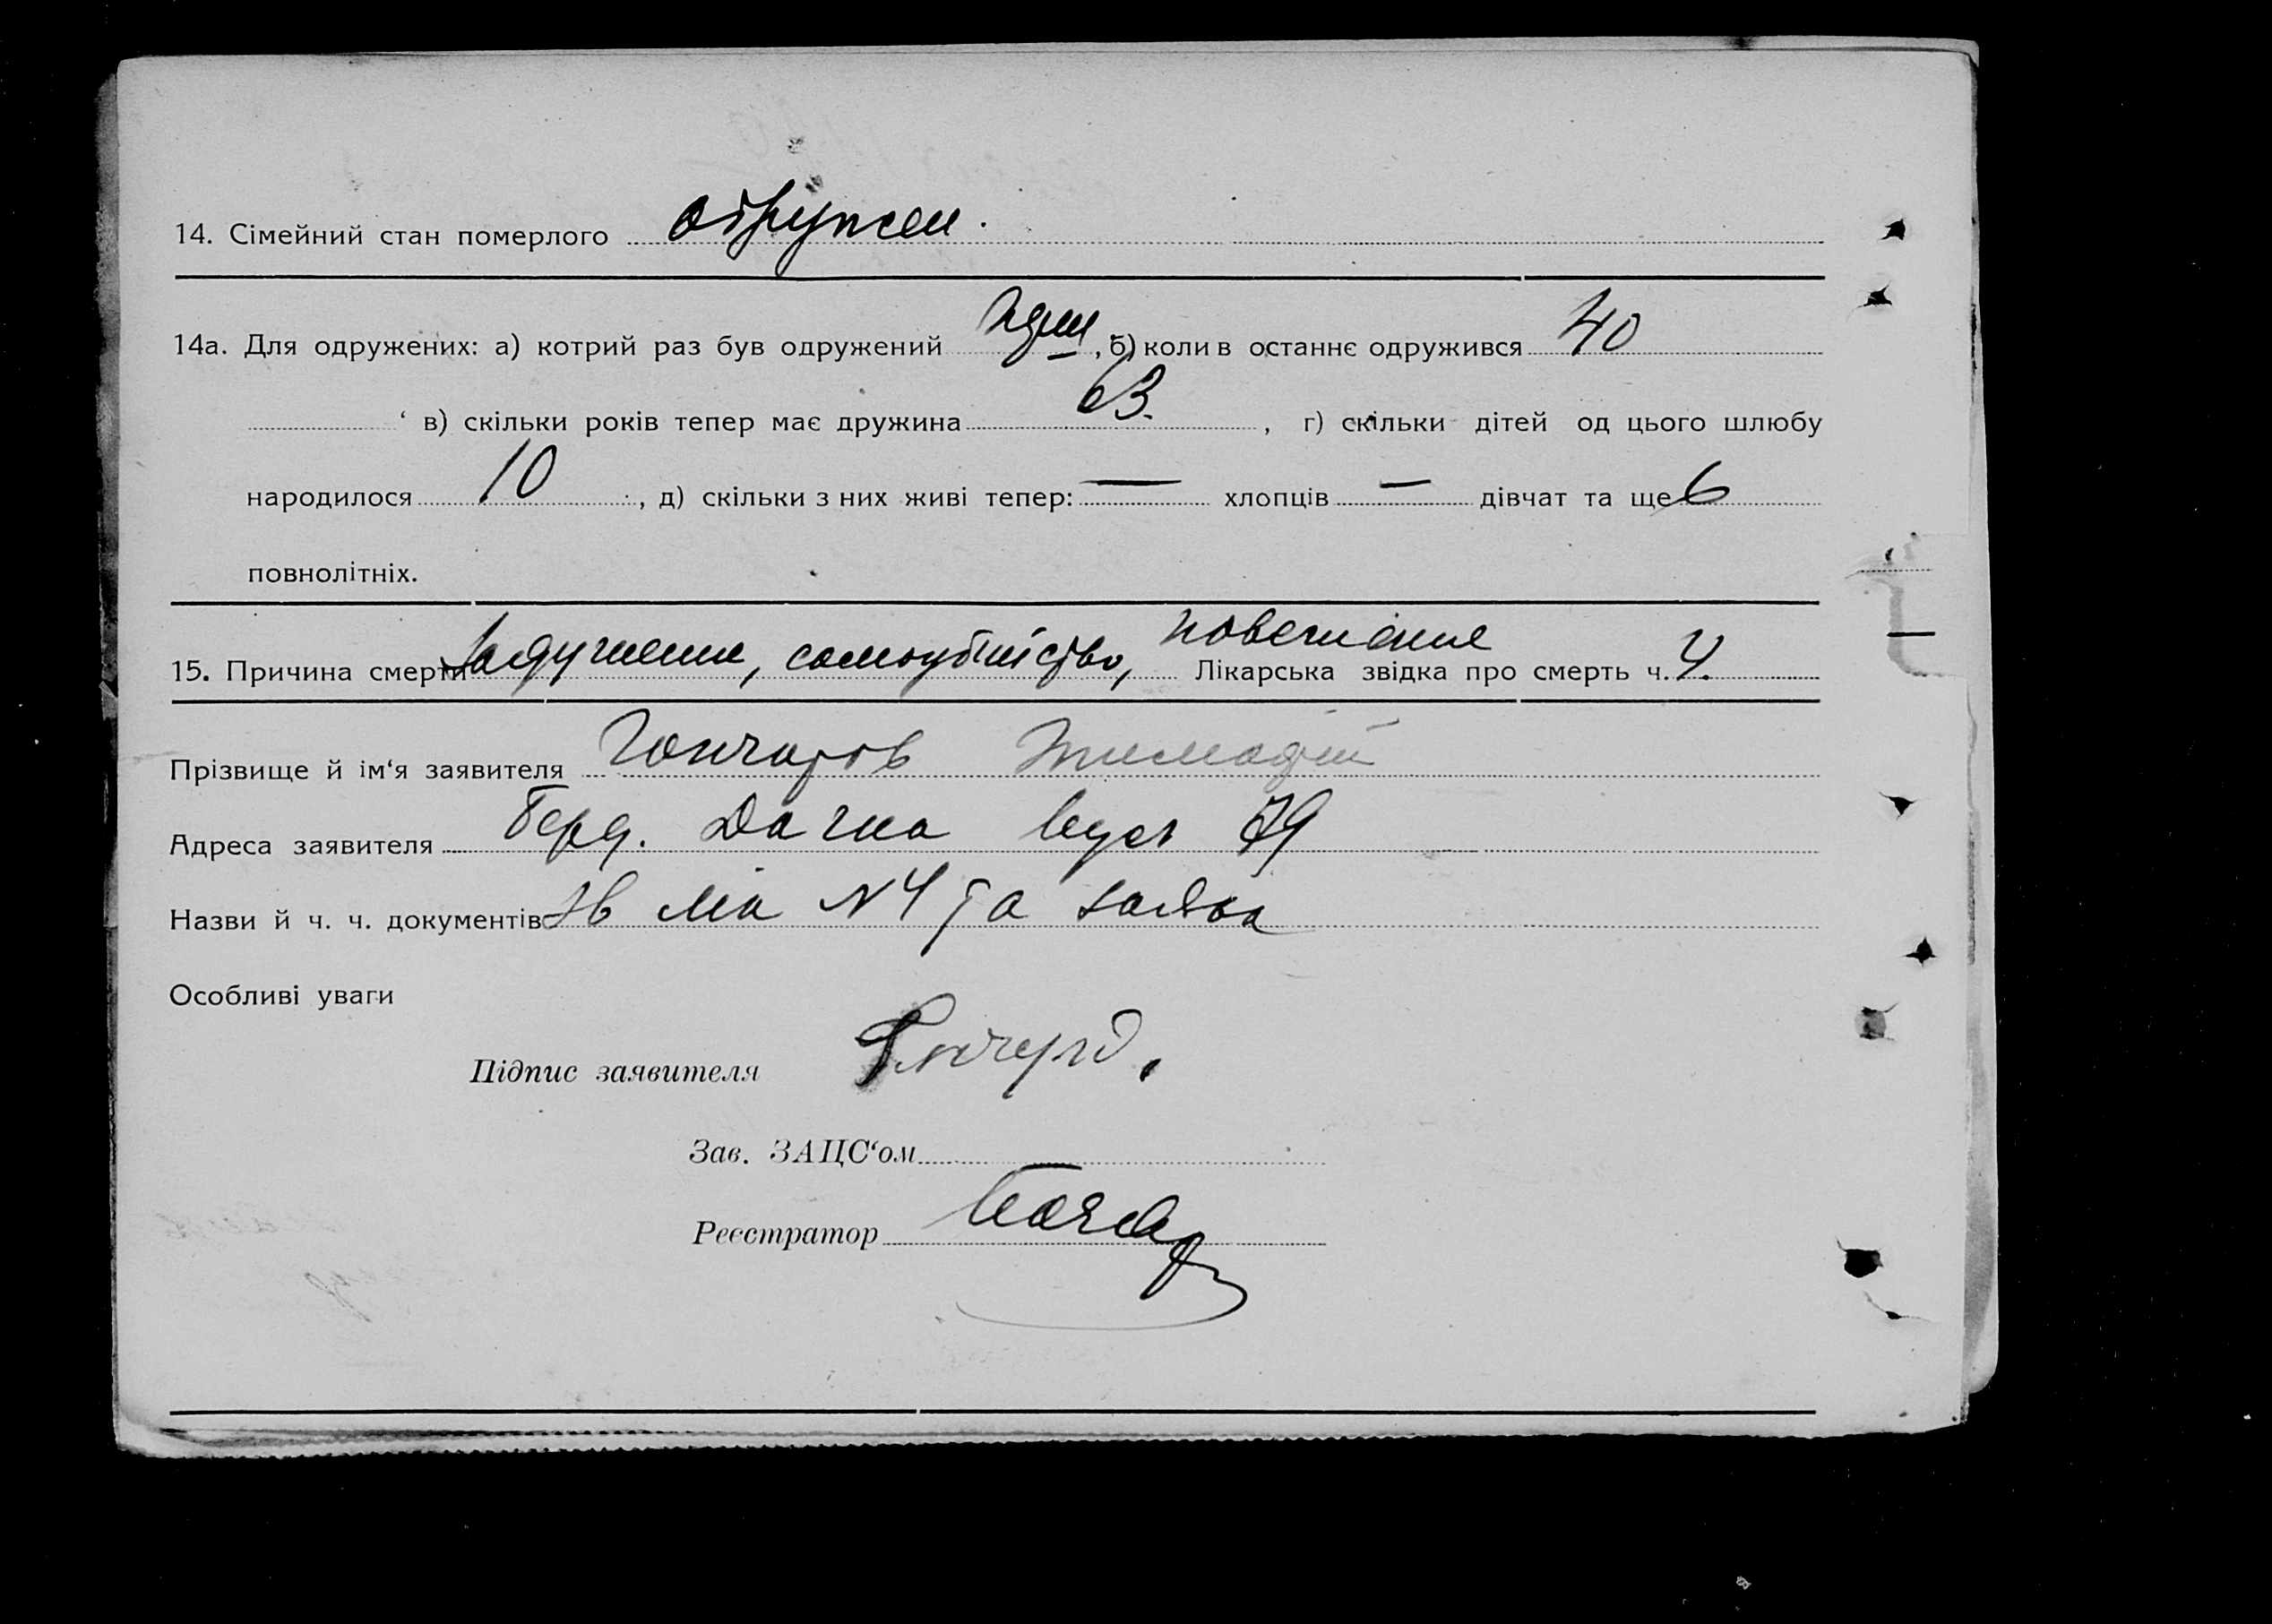 14. Сімейний стан померлого одружен.
14а. Для одружених: а) котрий раз був одружений один, б) коли в останнє одружився 40
в) скільки років тепер має дружина 63., г) скільки дітей од цього шлюбу
народилося 10, д) скільки з них живі тепер: — хлопців — дівчат та ще 6
повнолітніх.
15. Причина смерти Задушення, самоубийство, повешение Лікарська звідка про смерть ч. 4.
Прізвище й ім‘я заявителя Гончаров Тимофій
Адреса заявителя Берд. Дачна вул 79
Назви й ч. ч. документів Зв № 4 та заява
Особливі уваги
Підпис заявителя
Зав. ЗАЦС‘ом
Реєстратор